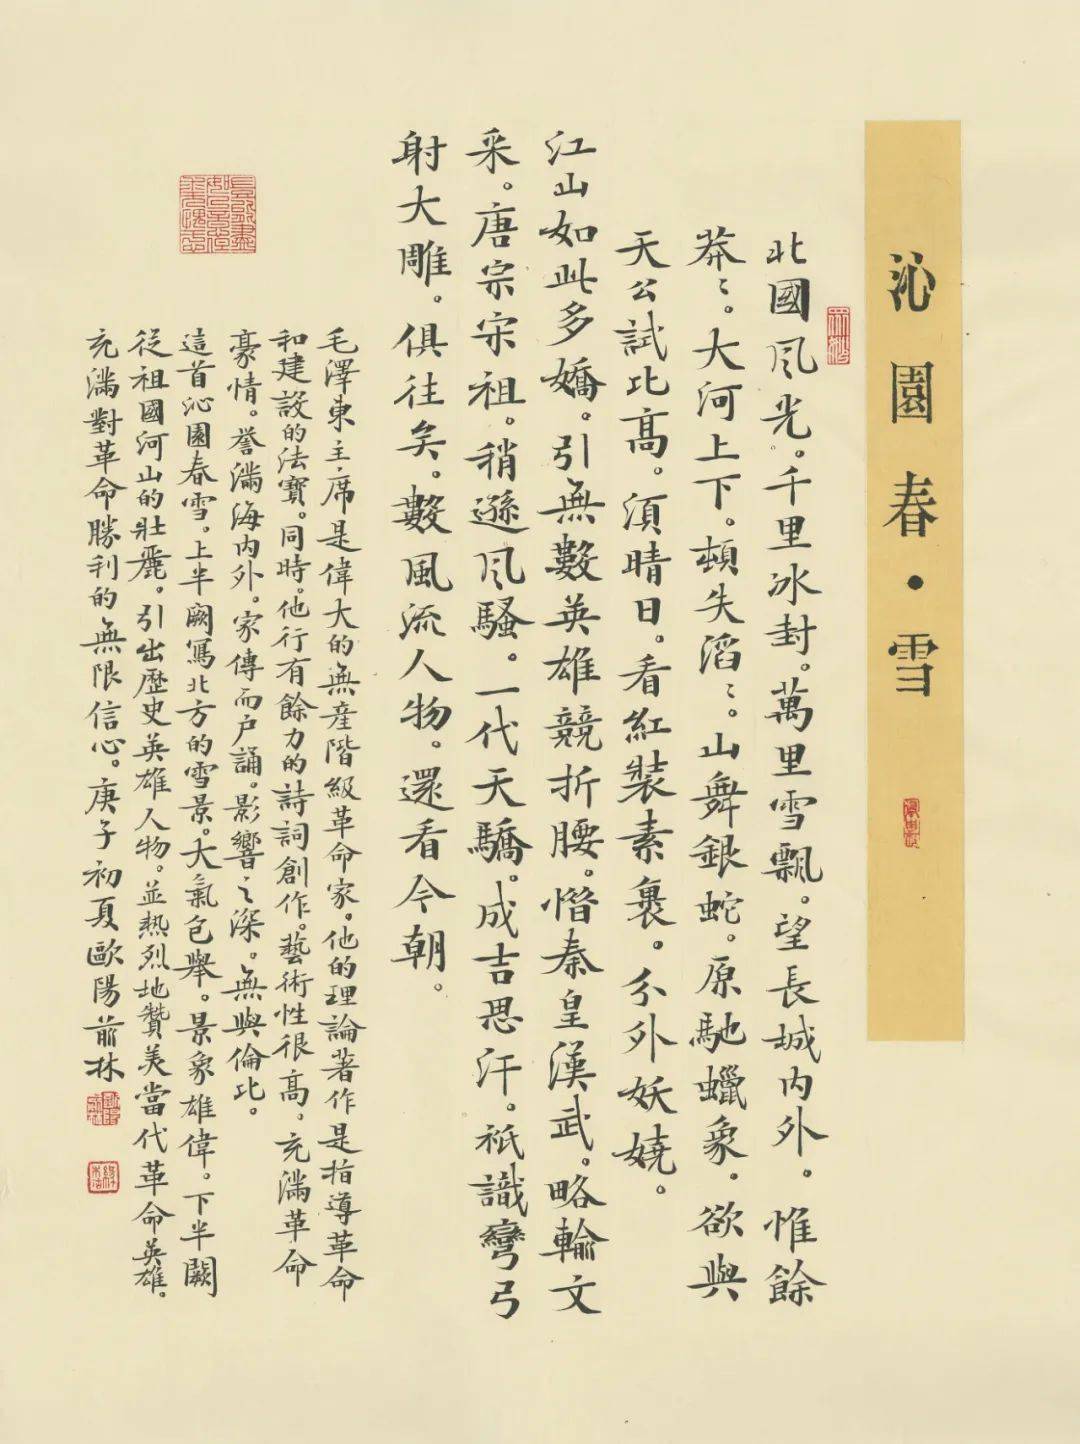 沁園春·雪
北國风光。千里冰封。萬里雪飄。望長城内外。惟餘
莽〻。大河上下。頓失滔〻。山舞銀蛇。原馳蠟象。欲與
天公試比高。須晴日。看紅裝素裹。分外妖嬈。
江山如此多嬌。引無數英雄競折腰。惜秦皇漢武。略輸文
采。唐宗宋祖。稍遜风騷。一代天驕。成吉思汗。祇識彎弓
射大雕。俱往矣。數風流人物。還看今朝。
毛澤東主席是偉大的無産階級革命家。他的理論著作是指導革命
和建設的法寶。同時。他行有餘力的詩詞創作。藝術性很高。充滿革命
豪情。譽滿海内外。家傳而户誦。影響之深。無與倫比。
這首沁園春雪。上半闕寫北方的雪景。大氣包舉。景象雄偉。下半闕
從祖國河山的壯麗。引出歷史英雄人物。並熱烈地贊美當代革命英雄。
充滿對革命勝利的無限信心。庚子初夏歐陽荊林